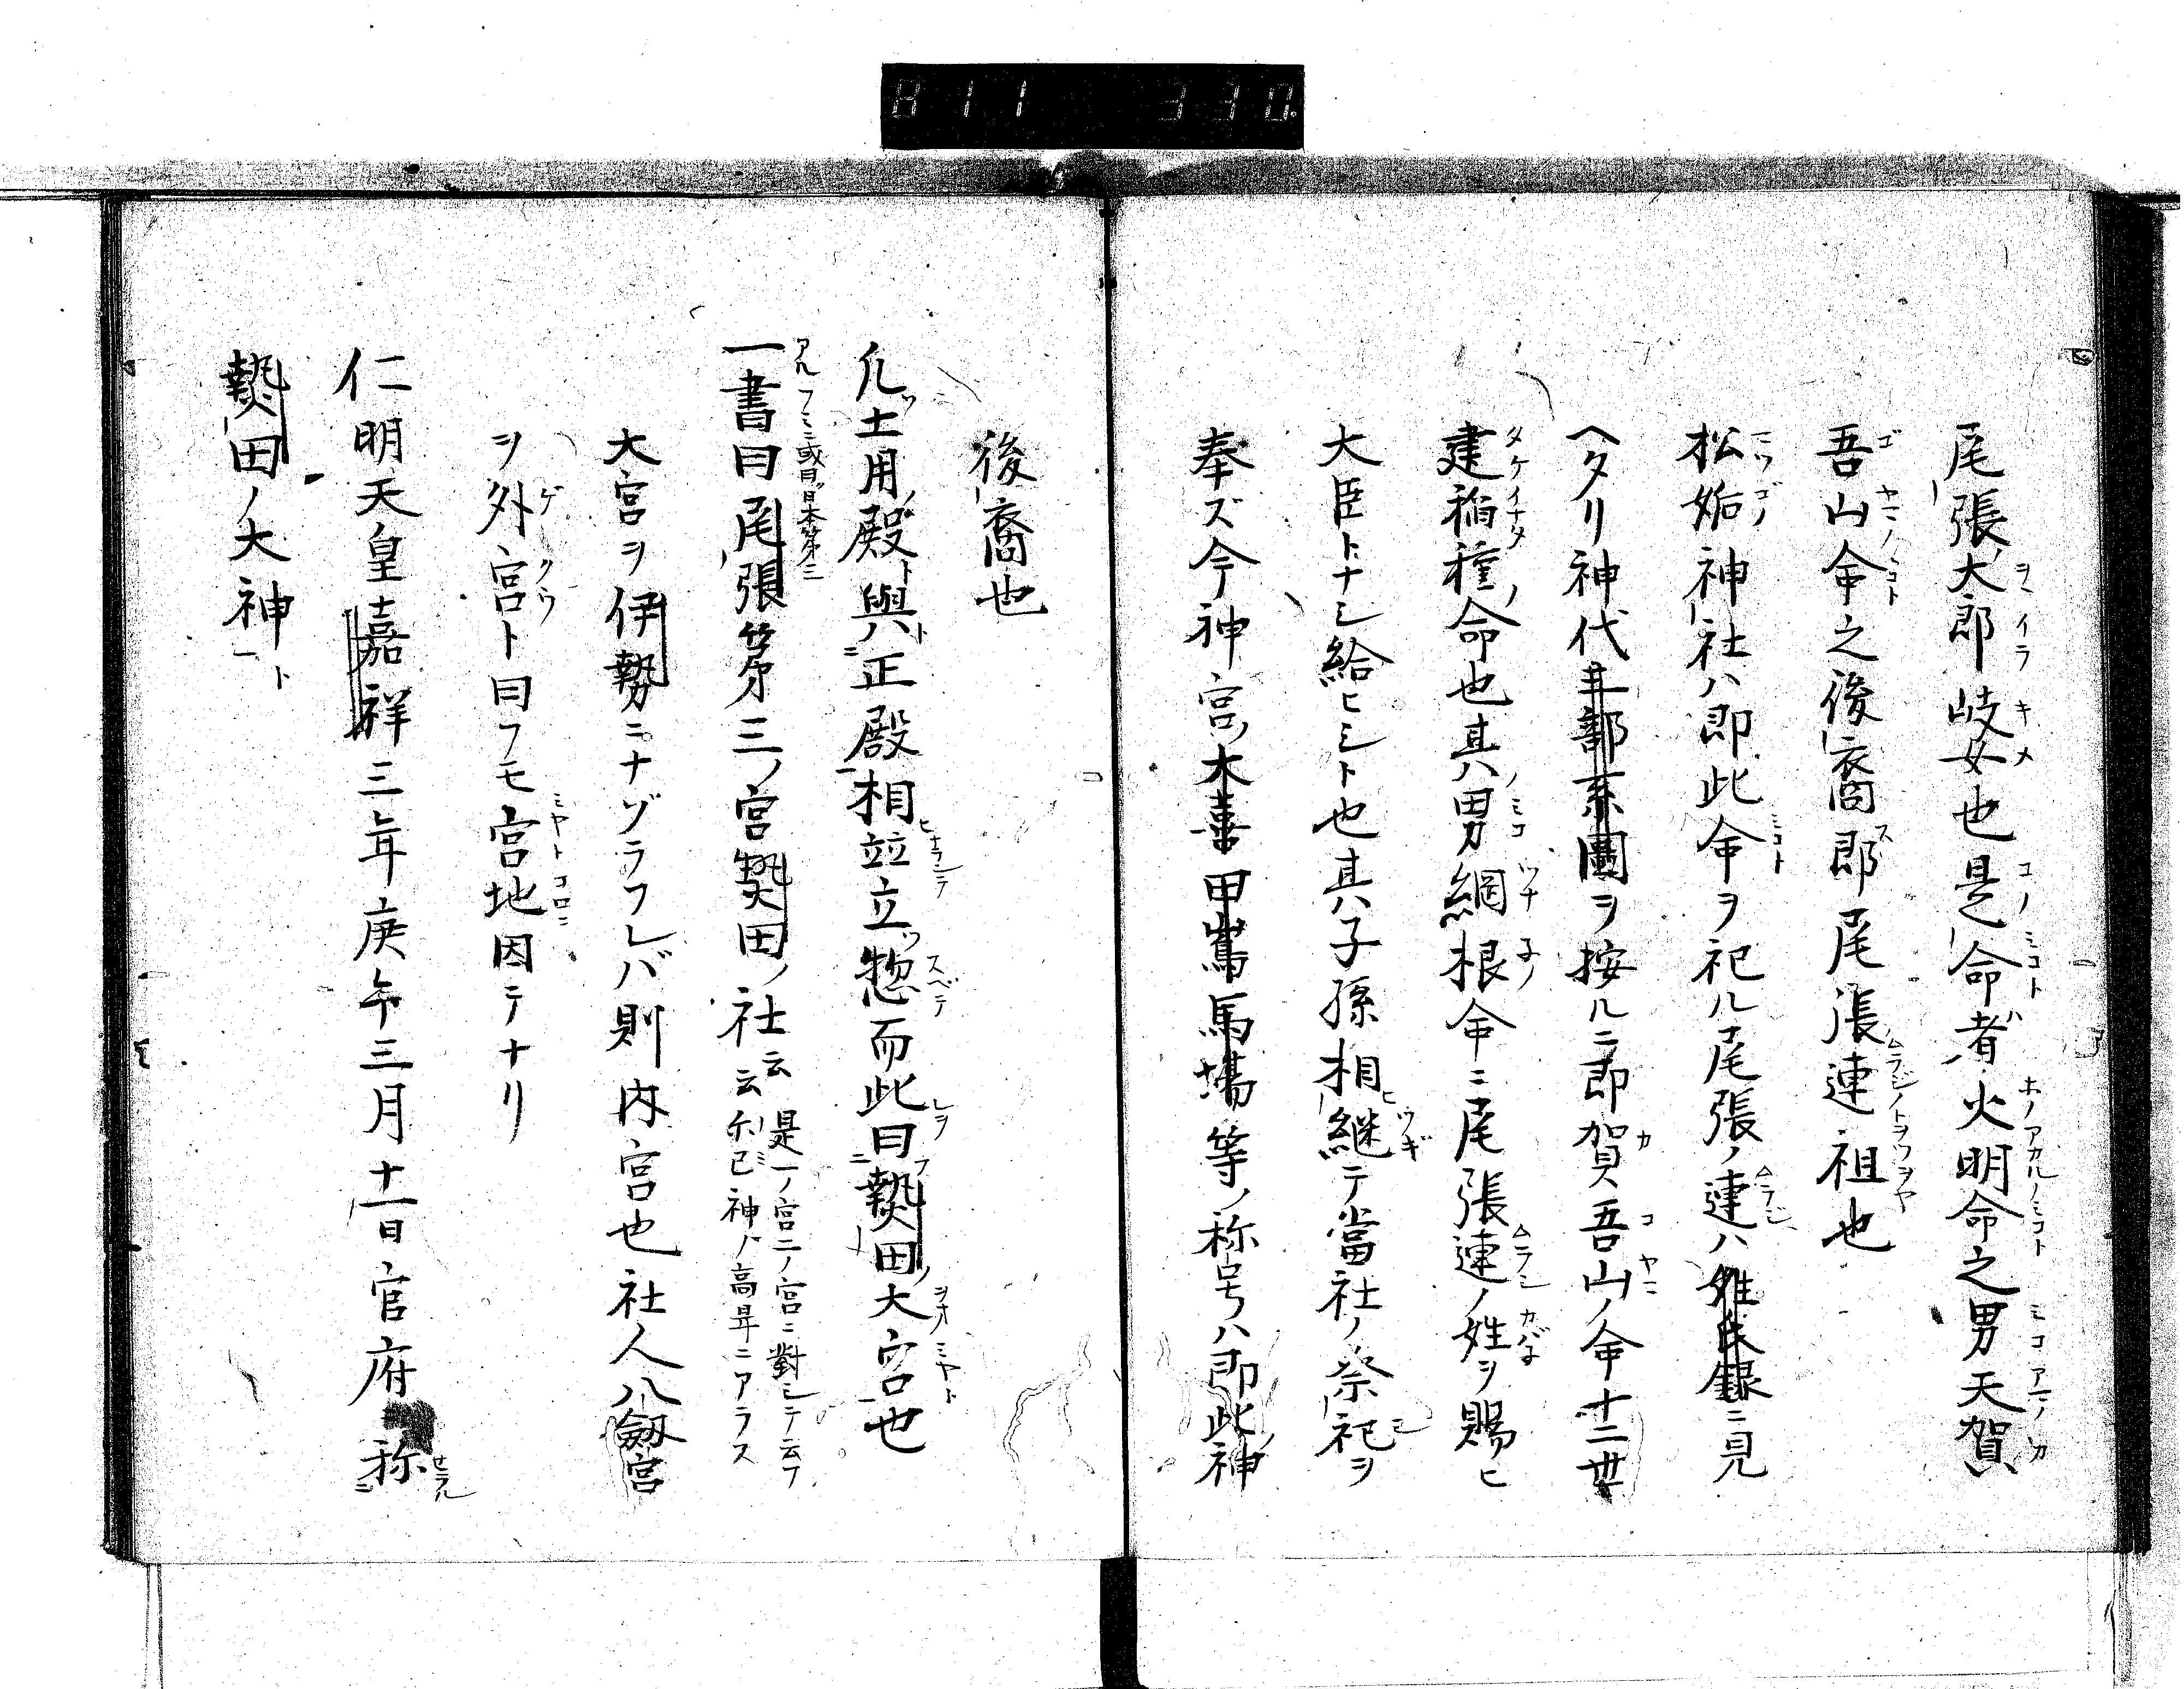 尾張大郎岐女也是命者火明命之男天賀
吾山命之後裔郎尾張連祖也
松姤神社ハ即此命ヲ祀ル尾張ノ連ハ姓氏録ニ見
ヘタリ神代系圖ヲ按ルニ即賀吾山ノ命十二世
建稲種命也其男綱根命ニ尾張連ノ姓ヲ賜ヒ
大臣トナシ給ヒシト也其子孫相継テ當社ノ祭祀ヲ
奉ズ今神宮ノ大喜馬場等ノ称号ハ即此神ノ
後裔也
凡土用殿與正殿相並立惣而此曰熱田大宮也
一書曰尾張第三ノ宮熱田ノ社云云
是一ノ宮二ノ宮ニ對シテ云フ
ノミ神ノ高卑ニアラス
大宮ヲ伊勢ニナゾラフレバ則内宮也社人八劔宮
ヲ外宮ト曰フモ宮地因テナリ
仁明天皇嘉祥三年庚午三月十一日官府称
熱田ノ大神ト
811 330.